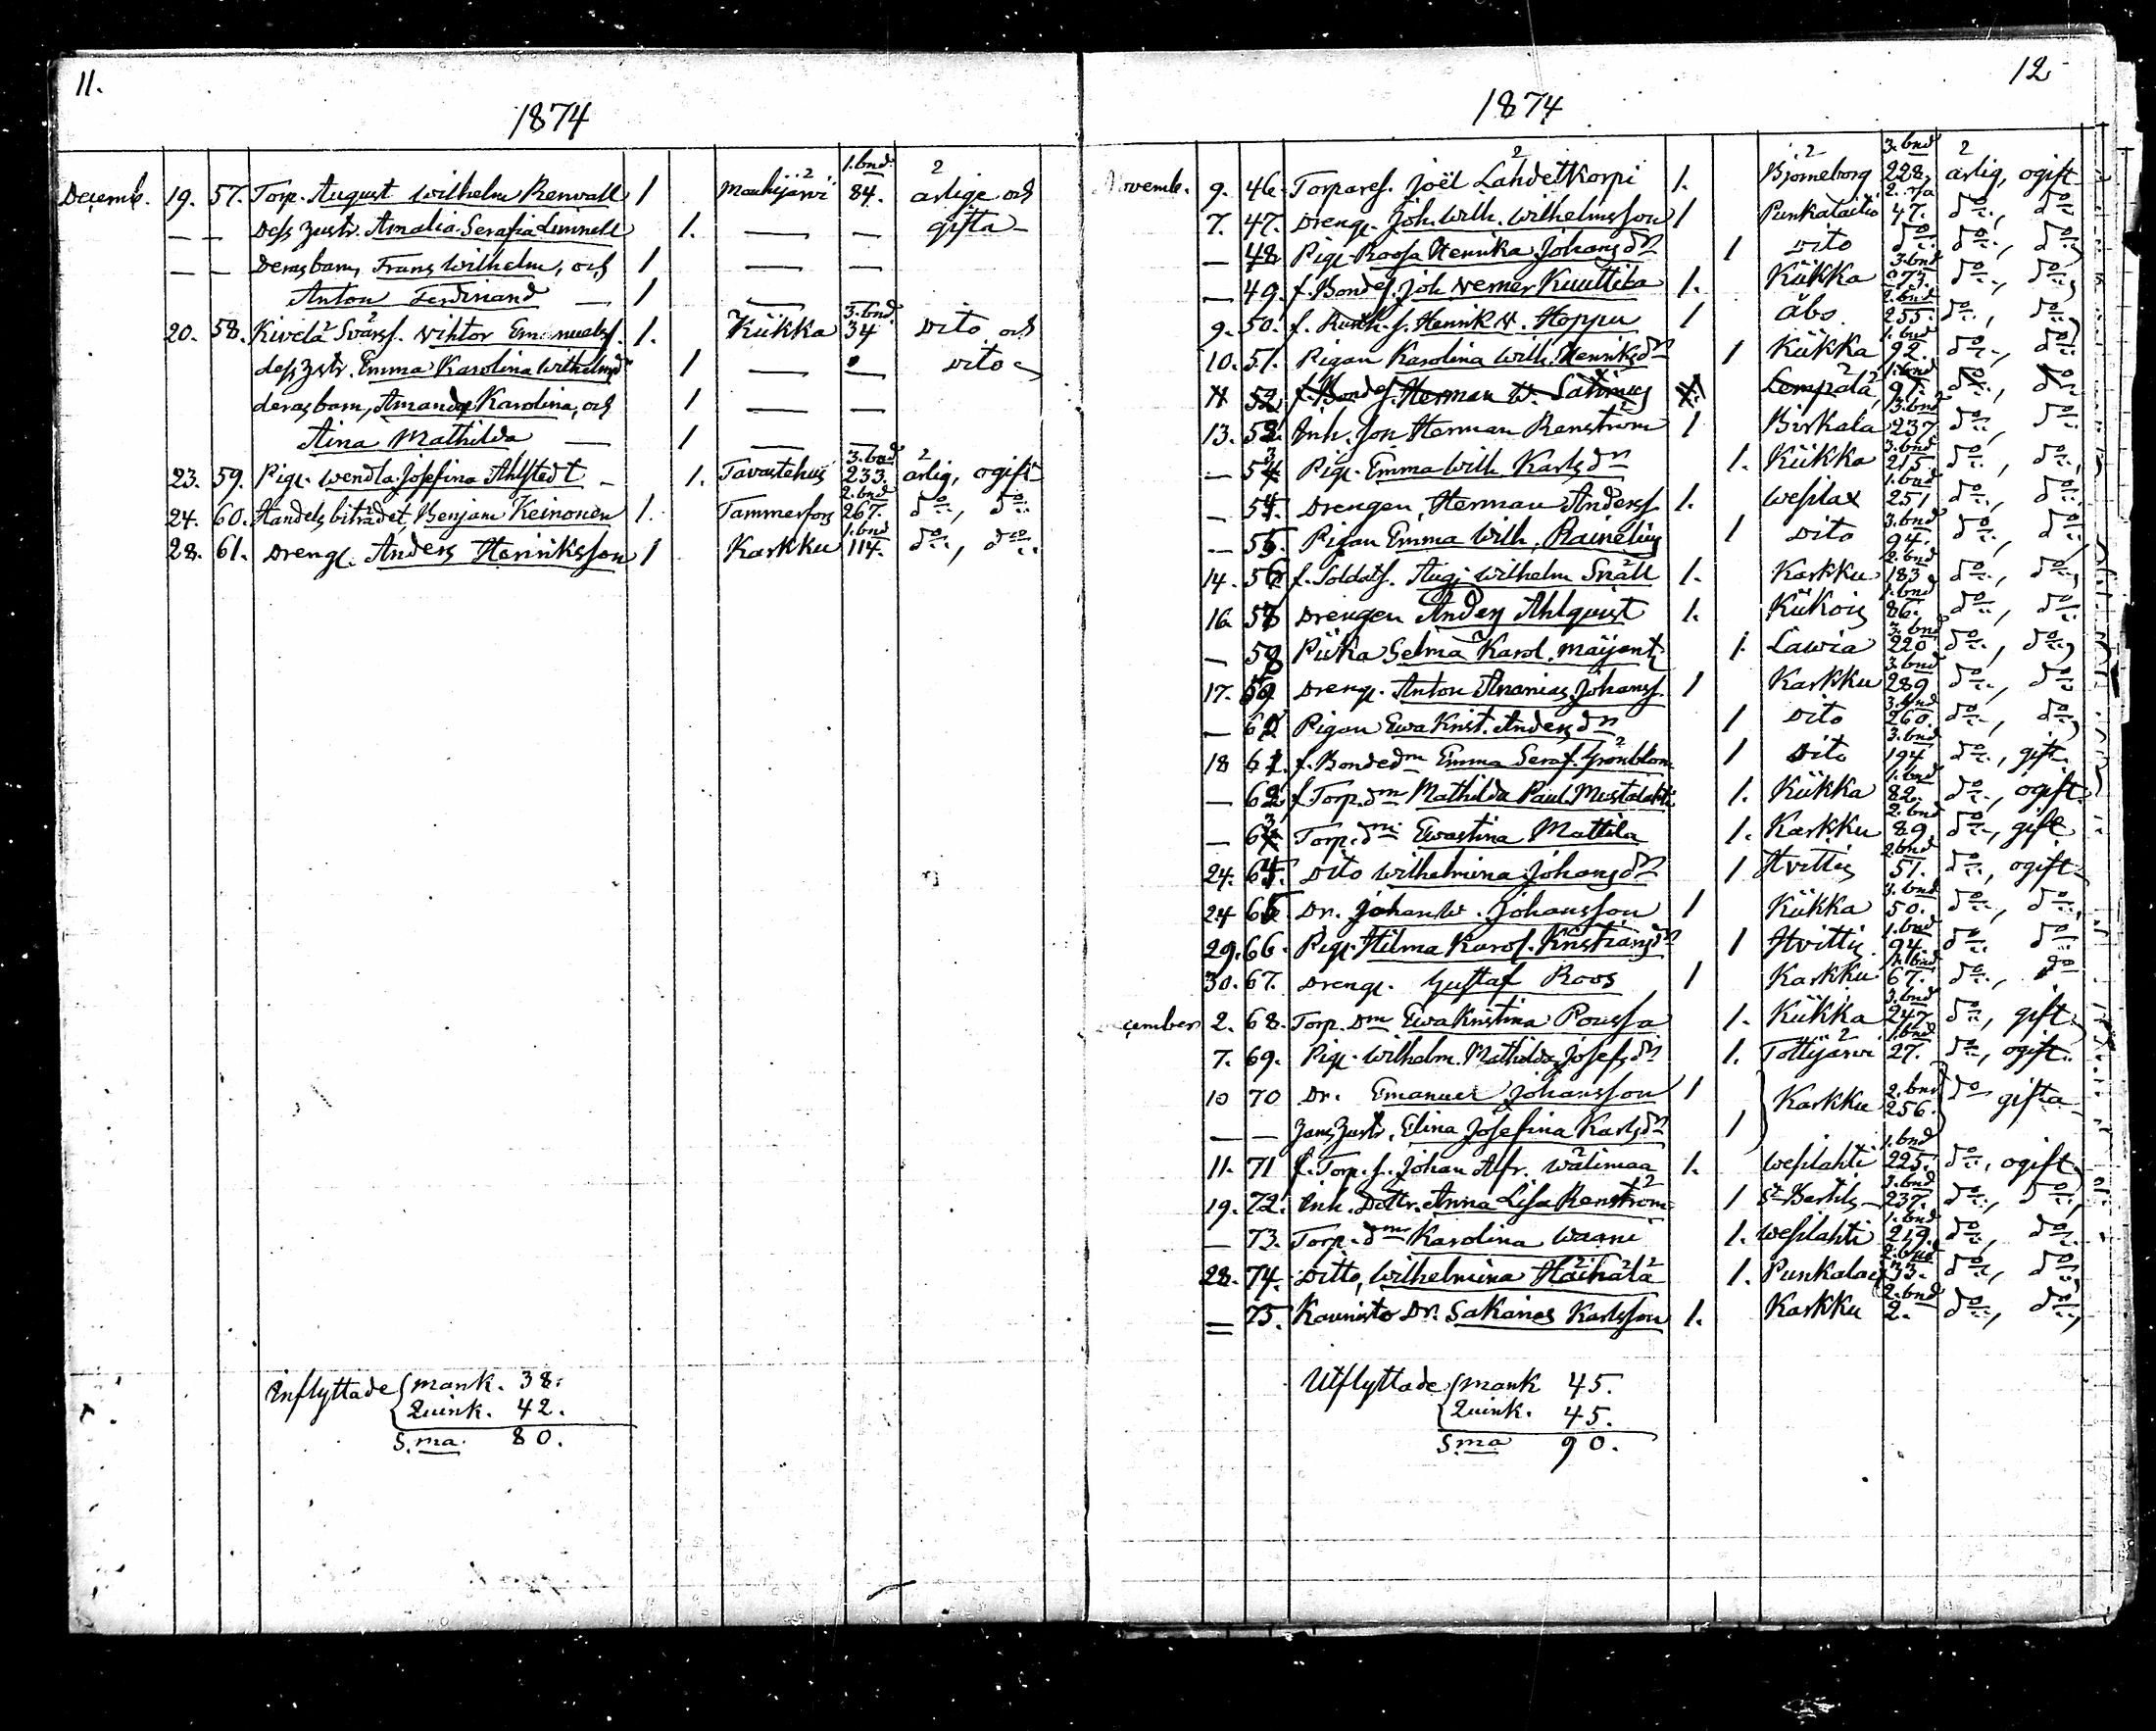 11.
1874
1. bnd.
Decemb. 19. 57. Torp. August Wilhelm Renvall 1 Mouhijärvi 84. ärlige och
— — Dess hustr. Amalia Serafia Linnell 1. — — gifta
— — Derasbarn, Frans Wilhelm, och 1 — —
Anton Ferdinand — 1 —
3. bnd.
20. 58. Kivelä Svärs. Wihtor Emanuelss. 1. Kiikka 34 dito och
dess hstr. Emma Karolina Wilhelmsdr 1 — — dito
derasbarn, Amanda Karolina, och 1 — —
Aina Mathilda — 1 — —
3. bnd
23. 59. Pig. Wendla Josefina Ahlstedt 1. Tavastehus 233. ärlig, ogift
2. bnd
24. 60. Handelsbiträdet, Benjam Keinonen 1. Tammerfors 267. do, do
1. bnd
28. 61. Dreng. Anders Henriksson 1 Karkku 114. do, do
Inflyttade mank. 38.
Quink. 42.
S.ma. 80.
12
1874
3. bnd
Novemb. 9. 46. Torpares. Joël Lähdetkorpi 1. Björneborg 228, ärlig, ogift
7. 47. Dreng. Joh. Wilh. Wilhelmsson 1 Punkalaitio 47. do, do
— 48 Pig. Roosa Henrika Johansdn 1 dito do. do, do
3. bnd
— 49. f. Bondes. Joh Verner Kuuttila 1. Kiikka 273. do, do
2. bnd
9. 50. f. s. Henrik W. Hoppu 1 Åbo 255. do, do
1. bnd
10. 51. Pigan Karolina Wilh. Henriksdn 1 Kiikka 92. do, do
1. bnd
11 52 f. Bondes. Herman W. Lempälä, 97. do, do
3. bnd
13. 52. Inh. son Herman Renström 1 Birkala 237 do, do
3. bnd
— 53 Pig. Emma Wilh Karlsdn 1. Kiikka 215. do, do
1. bnd
— 54. Drengen, Herman Anderss. 1. Wesilax 251 do, do
3. bnd
— 55. Pigan Emma Wilh. Rainelius 1 dito 94. do, do
2. bnd
14. 56 f. Soldats. Aug. Wilhelm Snäll 1. Karkku 183 do, do
1. bnd
16. 57 Drengen Anders Ahlquist 1. Kiikois 86. do, do
3. bnd
— 58 Piika Selma Karol. 1. Lavia 220. do, do
3. bnd
17. 59 Dreng. Anton Ananias Johanss. 1 Karkku 289 do, do
3. bnd
— 60 Pigan Ewa Krist. Andersdn 1 dito 260. do, do
3. bnd
18 61. f. Bondedm Emma Seraf. Grönblom 1 Dito 194 do, gift
1. bnd
— 62 f Torp. dm Mathilda Paul. Mustalahti 1. Kiikka 82. do, ogift
2. bnd
— 63 Torp. dm Ewastina Mattila 1. Karkku 89. do, gift
2. bnd
24. 64. Dito Wilhelmina Johansdn 1 Hvittis 51. do, ogift
3. bnd
24 65 Dr. Johan W. Johansson 1 Kiikka 50. do, do
1. bnd
29. 66. Pig. Hilma Karol. Kristiansdn 1 Hvittis 94. do. do
1. bnd
30. 67. Dreng. Gustaf Roos 1 Karkku 67. do, do
3. bnd
December 2. 68. Torp. Dm Ewa Kristina Poussa 1. Kiikka 247 do, gift
1. bnd
7. 69. Pig. Wilhelm. Mathilda Josefsdn 1. Tottijärvi 27. do, ogift.
10 70 Dr. Emanuel Johansson 1 Karkku 2. bnd 256. do gifta
— — hans hustr. Elina Josefina Karlsdn 1
1. bnd
11. 71 f. Torp. s. Johan Alfr. Wälimaa 1. Wesilahti 225. do, ogift
3. bnd
19. 72. Inh. Dottr. Anna Lisa Renström 1 St Bertils 237. do, do,
1. bnd
— 73. Torp. dm Karolina Waani 1. Wesilahti 219. do, do.
2. bnd
28. 74. Ditto, Wilhelmina Häihälä 1. Punkalai 33. do, do
2. bnd
75. Kaunisto Dr. Sakarias Karlsson 1. Karkku 2. do, do,
Utflyttade mank 45.
Quink. 45.
S.ma 90.